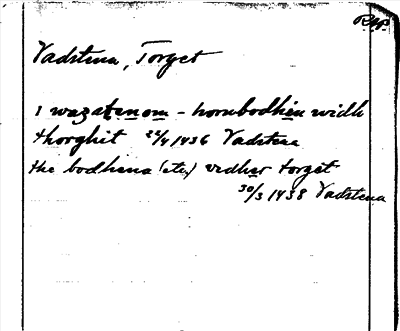 Rap.
Vadstena, Torget
i wazstenom - hornbodhin widh
thorghit 24/4 1436 Vadstena
the bodhena (etc) vidher torget
30/3 1438 Vadstena